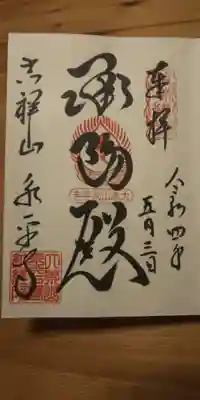 奉拝
令和四年
五月三日
承陽殿
吉祥山 永平寺